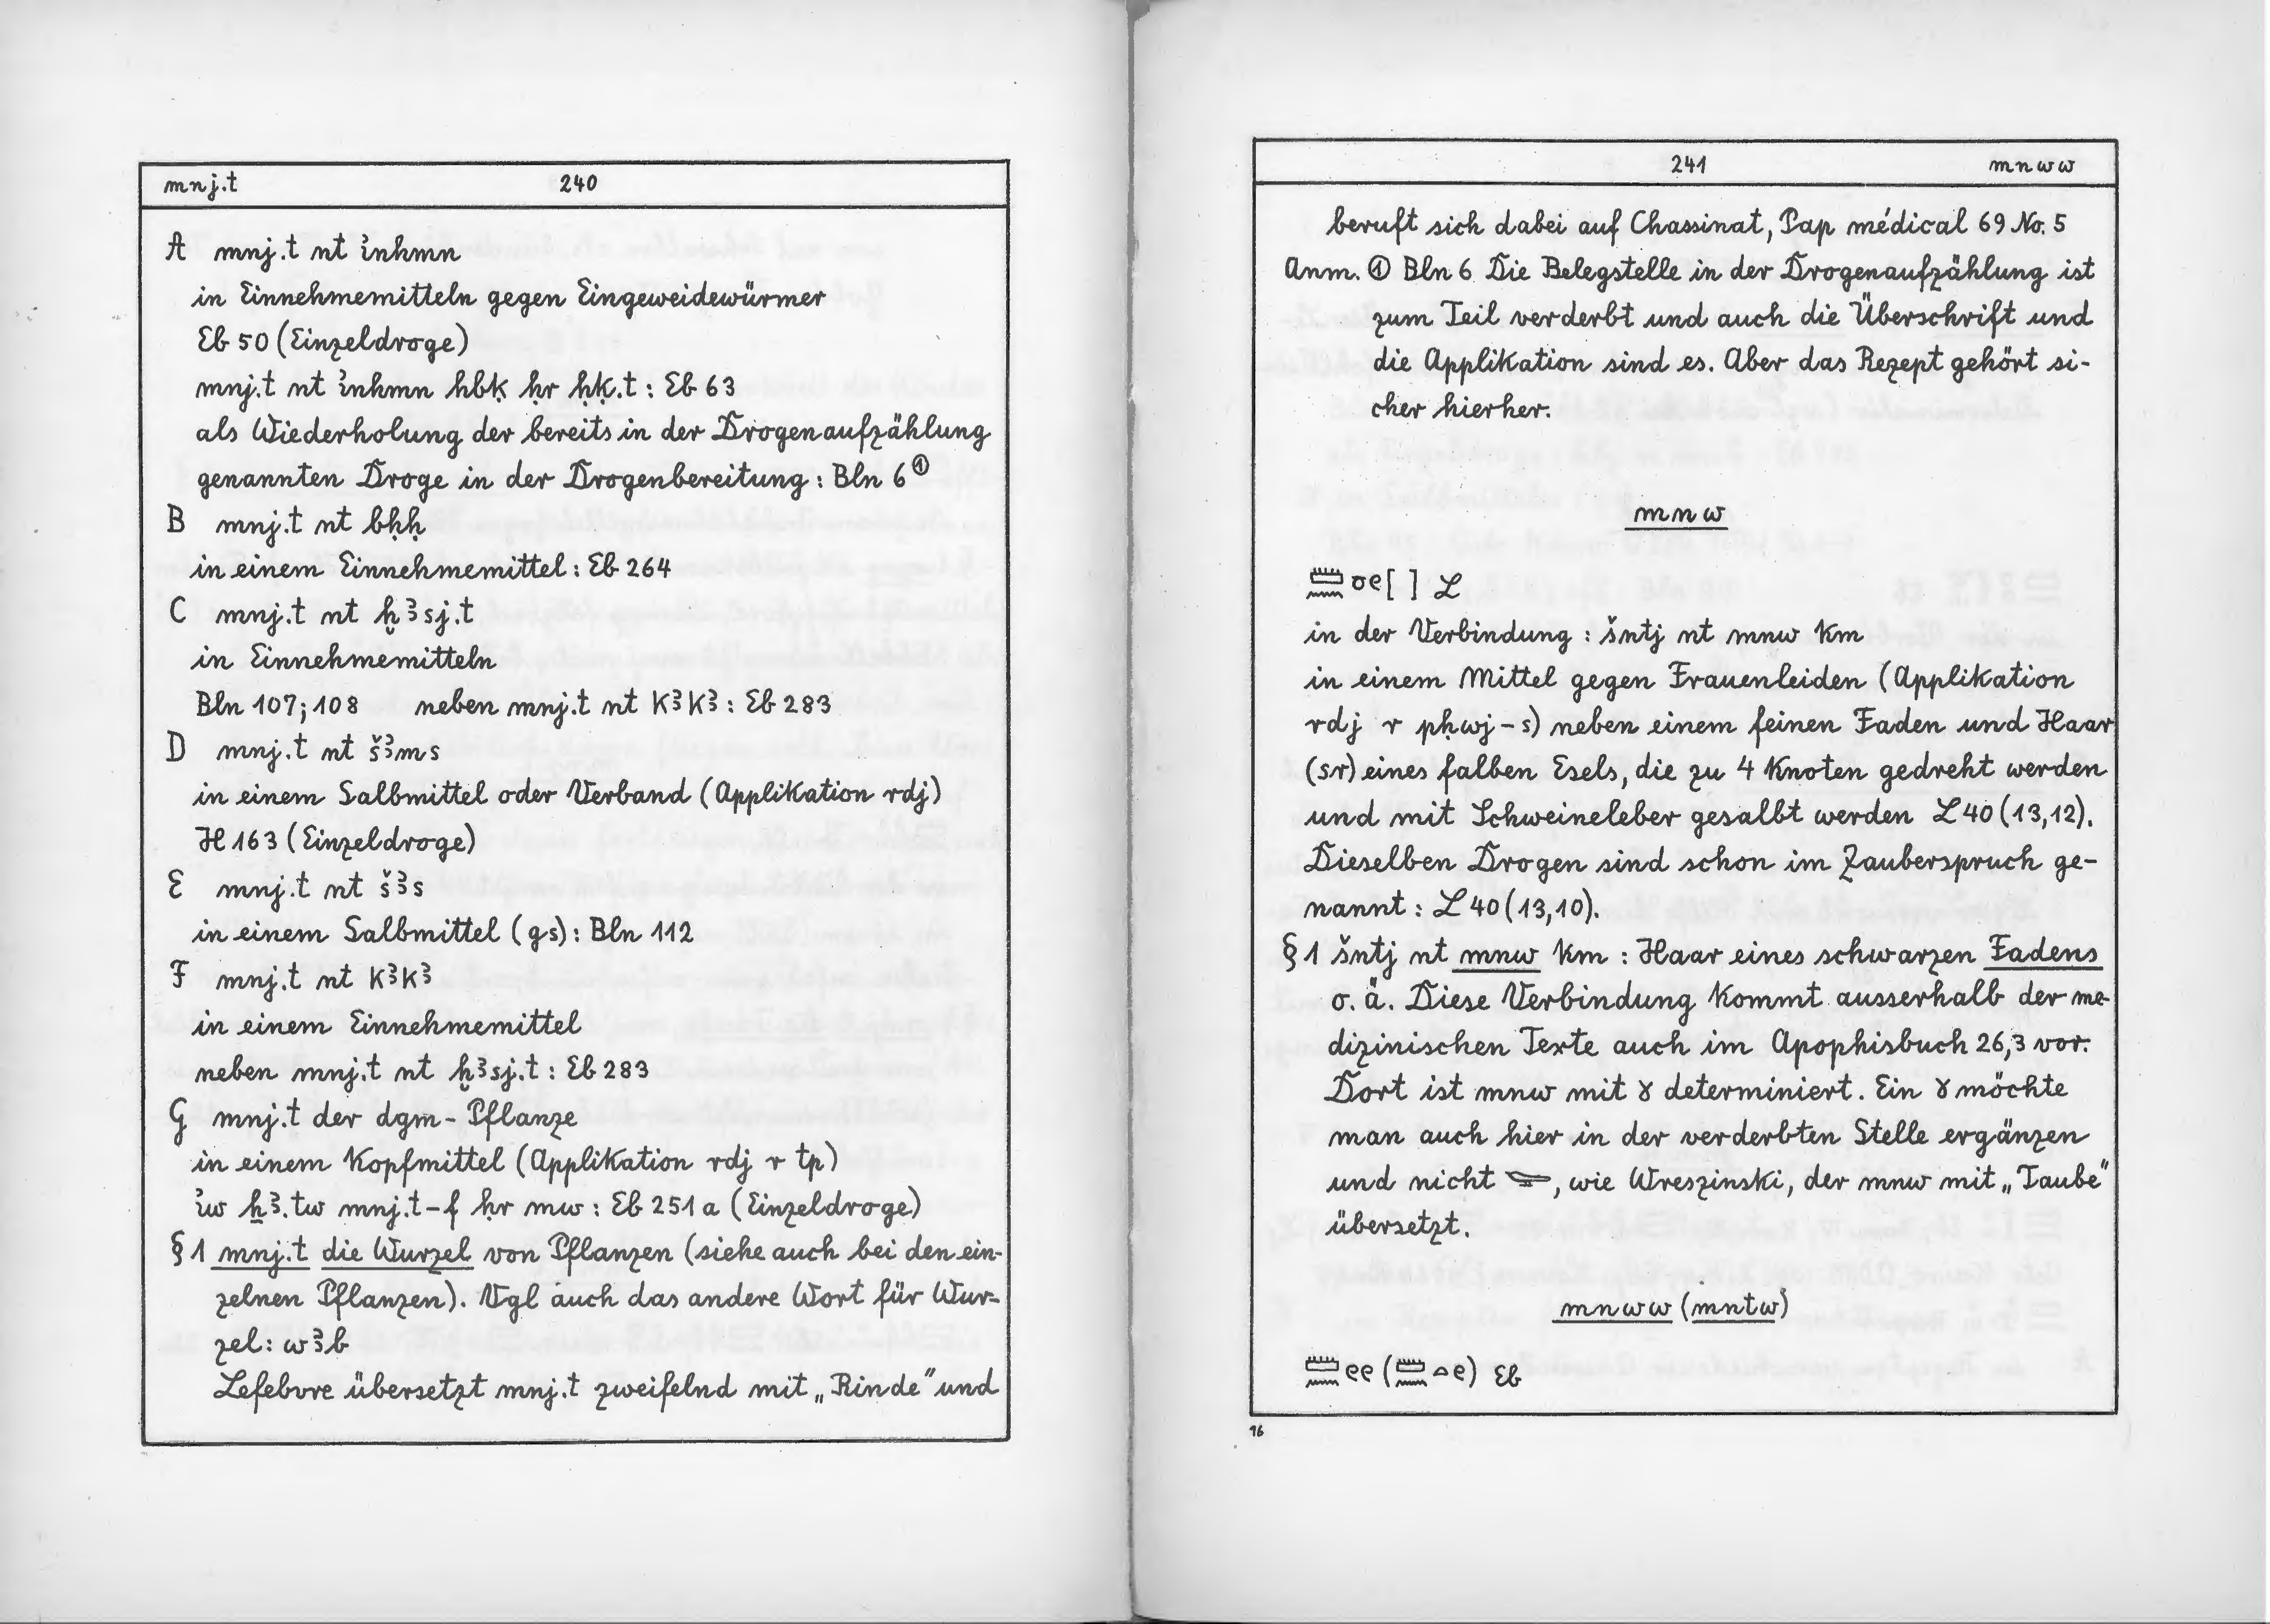 mnj.t 240
A mnj.t nt ꞽnhmn
in Einnehmemitteln gegen Eingeweidewürmer
Eb 50 (Einzeldroge)
mnj.t nt ꞽnhmn hbḳ ḥr ḥḳ.t : Eb 63
als Wiederholung der bereits in der Drogenaufzählung
genannten Droge in der Drogenbereitung : Bln 6 ①
B mnj.t nt bḥḥ
in einem Einnehmemittel : Eb 264
C mnj.t nt ḫꜣsj.t
in Einnehmemitteln
Bln 107; 108 neben mnj.t nt kꜣkꜣ : Eb 283
D mnj.t nt šꜣms
in einem Salbmittel oder Verband (Applikation rdj)
H 163 (Einzeldroge)
E mnj.t nt šꜣs
in einem Salbmittel (gs) : Bln 112
F mnj.t nt kꜣkꜣ
in einem Einnehmemittel
neben mnj.t nt ḫꜣsj.t : Eb 283
G mnj.t der dgm-Pflanze
in einem Kopfmittel (Applikation rdj r tp)
ꞽw ẖꜣ.tw mnj.t-f ḥr mw : Eb 251 a (Einzeldroge)
§ 1 mnj.t die Wurzel von Pflanzen (siehe auch bei den ein-
zelnen Pflanzen). Vgl auch das andere Wort für Wur-
zel : wꜣb
Lefebvre übersetzt mnj.t zweifelnd mit „Rinde" und
241 mnww
beruft sich dabei auf Chassinat, Pap médical 69 No. 5
Anm. ① Bln 6 Die Belegstelle in der Drogenaufzählung ist
zum Teil verderbt und auch die Überschrift und
die Applikation sind es. Aber das Rezept gehört si-
cher hierher.
mnw
𓏠𓈖𓏌𓏲[ ] L
in der Verbindung : šntj nt mnw km
in einem Mittel gegen Frauenleiden (Applikation
rdj r pḥwj-s) neben einem feinen Faden und Haar
(sr) eines falben Esels, die zu 4 Knoten gedreht werden
und mit Schweineleber gesalbt werden L 40 (13,12).
Dieselben Drogen sind schon im Zauberspruch ge-
nannt : L 40 (13,10).
§ 1 šntj nt mnw km : Haar eines schwarzen Fadens
o. ä. Diese Verbindung kommt ausserhalb der me-
dizinischen Texte auch im Apophisbuch 26,3 vor.
Dort ist mnw mit 𓍢 determiniert. Ein 𓍢 möchte
man auch hier in der verderbten Stelle ergänzen
und nicht , wie Wreszinski, der mnw mit „Taube"
übersetzt.
mnww (mntw)
𓏠𓈖𓏲𓏲 (𓏠𓈖𓏏𓏲) Eb
16